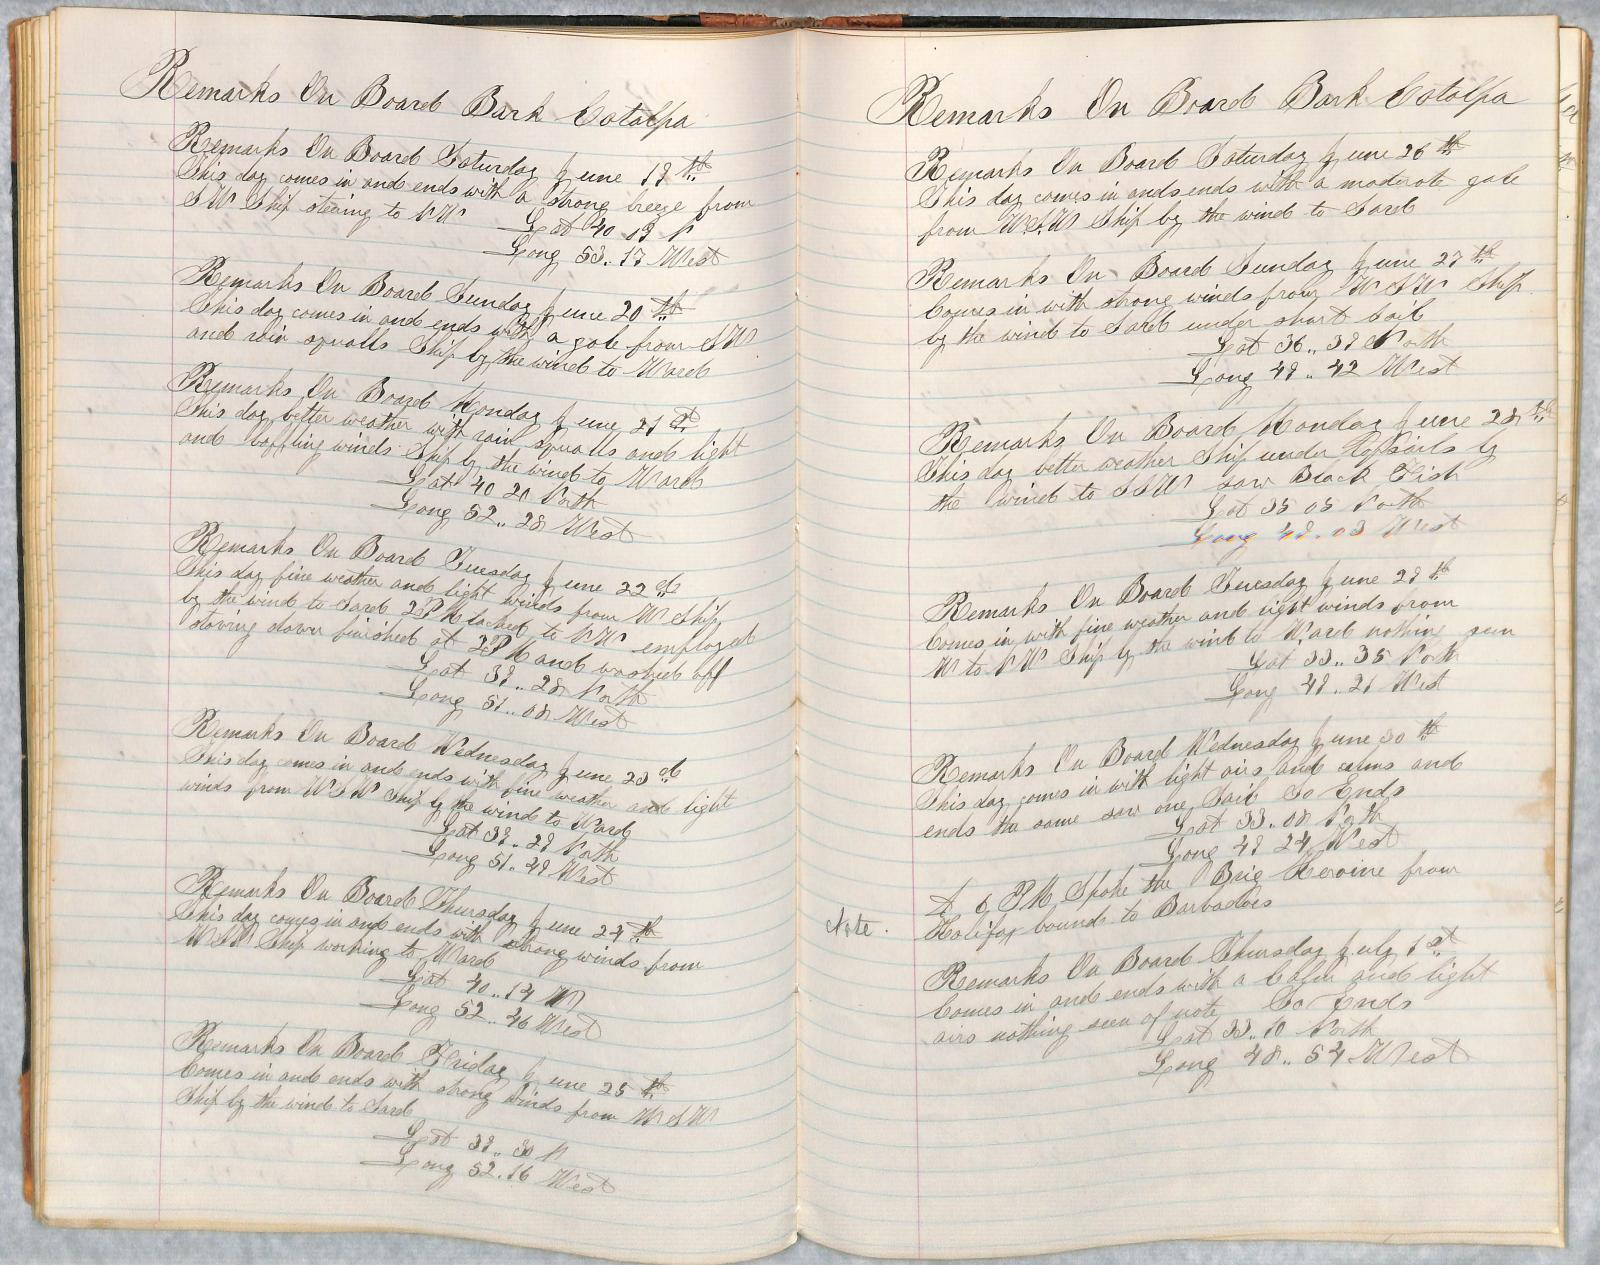 Remarks On Board Bark Catalpa
Remarks On Board Saturday June 19th
This day comes in and ends with a strong breeze from
SW Ship steering to NW
Lat 40 19 N
Long 53.. 17 West
Remarks On Board Sunday June 20th
This day comes in and ends with a gale from SW
and rain squalls Ship by the wind to Ward
Remarks On Board Monday June 21st
This day better weather with rain squalls and light
and baffling winds Ship by the wind to Ward
Lat 40 20 North
Long 52.. 28 West
Remarks On Board Tuesday June 22nd
This day fine weather and light winds from W Ship
by the wind to Sard 2 PM tacked to NW employed
stowing down finished at 3 PM and washed off
Lat 39.. 28 North
Long 51.. 08 West
Remarks On Board Wednesday June 23rd
This day comes in and ends with fine weather and light
winds from WSW Ship by the wind to Ward
Lat 39.. 29 North
Long 51. 49 West
Remarks On Board Thursday June 24th
This day comes in and ends with strong winds from
WSW Ship working to Ward
Lat 40.. 14 N
Long 52.. 46 West
Remarks On Board Friday June 25th
Comes in and ends with strong winds from WSW
Ship by the wind to Sard
Lat 39.. 30 N
Long 52.. 16 West
Remarks On Board Bark Catalpa
Remarks On Board Saturday June 26th
This day comes in and ends with a moderate gale
from WSW Ship by the wind to Sard
Remarks On Board Sunday June 27th
Comes in with strong winds from WSW Ship
by the wind to Sard under short sail
Lat 36.. 39 North
Long 49.. 42 West
Remarks On Board Monday June 28th
This day better weather Ship under Topsails by
the wind to SSW saw Black Fish
Lat 35 05 North
Long 49.. 03 West
Remarks On Board Tuesday June 29th
Comes in with fine weather and light winds from
W to NW Ship by the wind to Ward nothing seen
Lat 33.. 35 North
Long 49.. 21 West
Remarks On Board Wednesday June 30th
This day comes in with light airs and calms and
ends the same saw one Sail So Ends
Lat 33.. 08 North
Long 49 24 West
Note. At 6 PM Spoke the Brig Heroine from
Halifax bound to Barbadoes
Remarks On Board Thursday July 1st
Comes in and ends with a Calm and light
airs nothing seen of note So Ends
Lat 33.. 10 North
Long 48.. 54 West